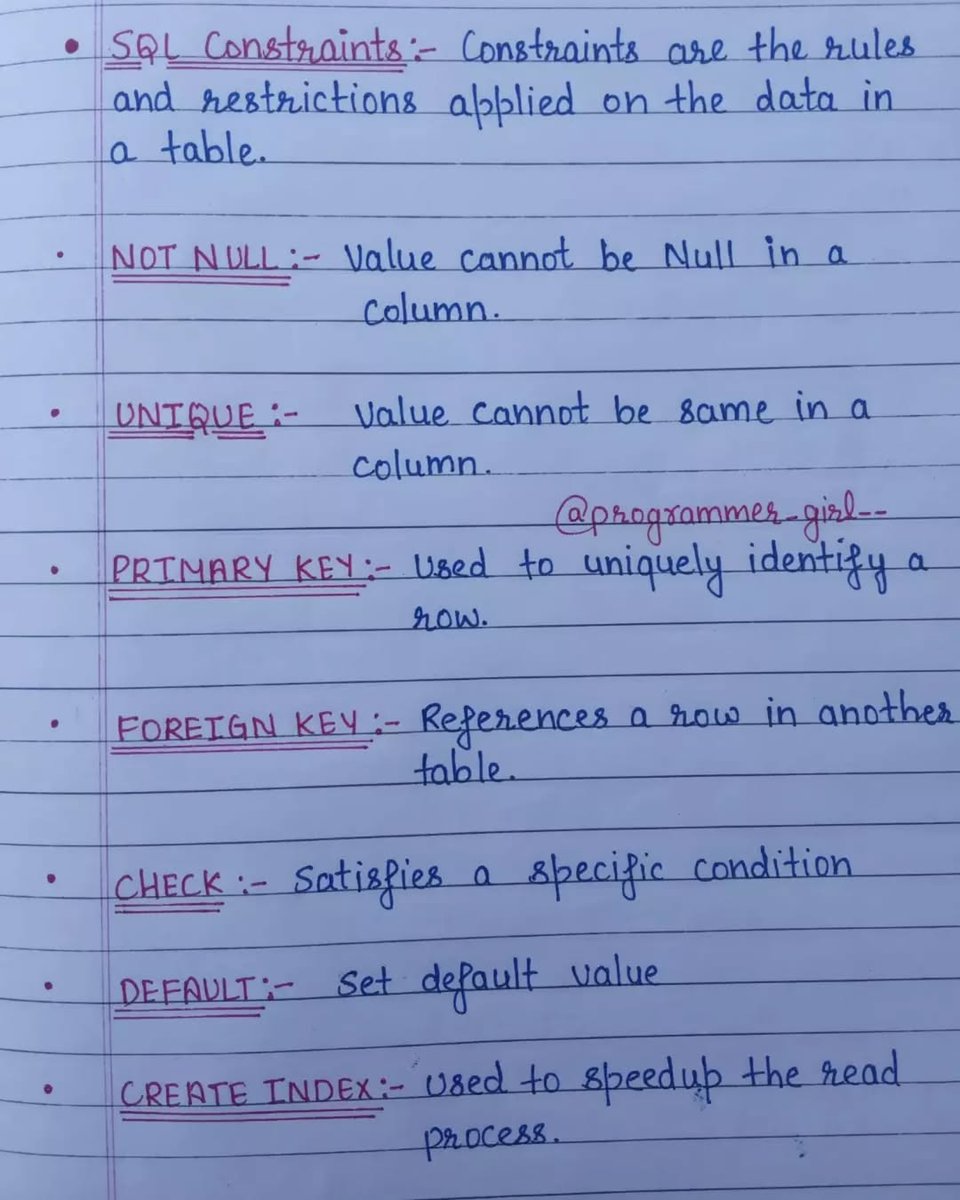 • SQL Constraints:- Constraints are the rules
and restrictions applied on the data in
a table.
• NOT NULL:- Value cannot be Null in a
column.
• UNIQUE:- Value cannot be same in a
column.
@programmer_girl--
• PRIMARY KEY:- Used to uniquely identify a
row.
• FOREIGN KEY:- References a row in another
table.
• CHECK:- Satisfies a specific condition
• DEFAULT:- Set default value
• CREATE INDEX:- Used to speedup the read
process.